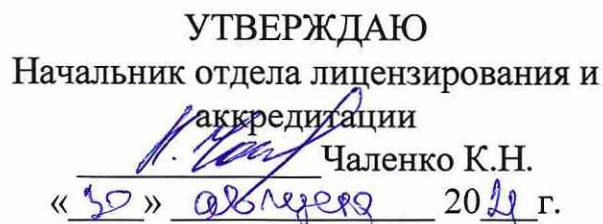 УТВЕРЖДАЮ
Начальник отдела лицензирования и
аккредитации
Чаленко К.Н.
«30» августа 2021 г.